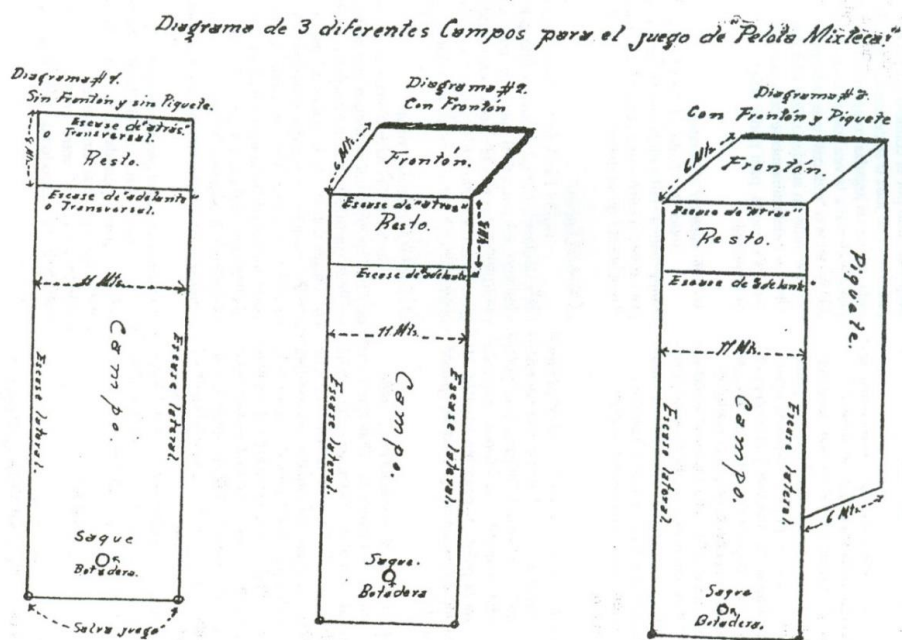 Diagrama de 3 diferentes Campos para el juego de "Pelota Mixteca."
Diagrama # 1.
Sin Frontón y sin Piquete.
Escase de "atrás"
o Transversal.
8 Mts.
Resto.
Escase de "adelante"
o Transversal.
11 Mts.
Campo.
Escase lateral.
Escase lateral.
Saque
Botadera.
Salva juego
Diagrama # 2.
Con Frontón
6 Mts.
Frontón.
Escase de "atras"
Resto.
8 Mts.
Escase de "adelante"
11 Mts.
Campo.
Escase lateral.
Escase lateral.
Saque.
Botadera
Diagrama # 3.
Con Frontón y Piquete
6 Mts.
Frontón.
Escase de "Atras"
Resto.
Escase de adelante
Piquete.
11 Mts.
Campo.
Escase lateral.
Escase lateral.
6 Mts.
Saque
Botadera.